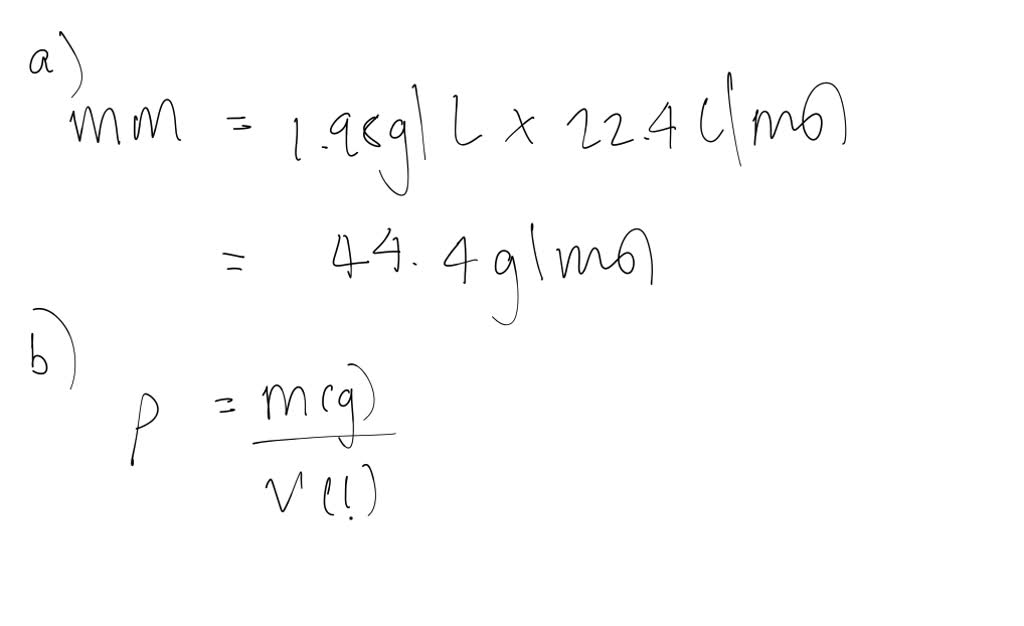 a)
mm = 1.98g/L x 22.4 L/mol
= 44.4 g/mol
b)
ρ = m(g)
V(L)